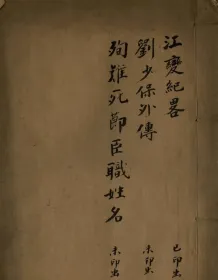 江變紀畧
已印出
劉少保外傳
未印出
殉難死節臣職姓名
未印出